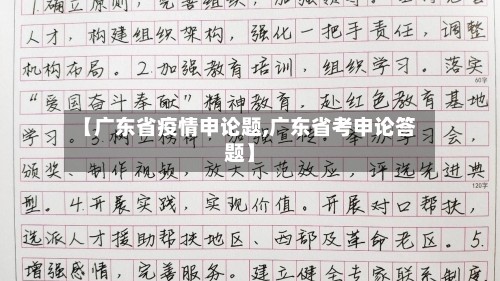 1.确立原则,完善组织,加强领导。
人才,构建组织架构,强化一把手责任,调整
机构布局。2.加强教育培训,组织学习。落实
60字
“爱国奋斗奉献”精神教育,赴红色教育基地
【广东省疫情申论题,广东省考申论答
题】
学习。3.树立榜样,
学习会,
颁奖、制作视频,放大示范效应,评选先进典
120字
型。4.开展实践,实现价值。开展对口帮扶,
选派人才援助帮扶地区、西部及革命老区。5.
增强感情,完善服务。建立健全专家联系制度